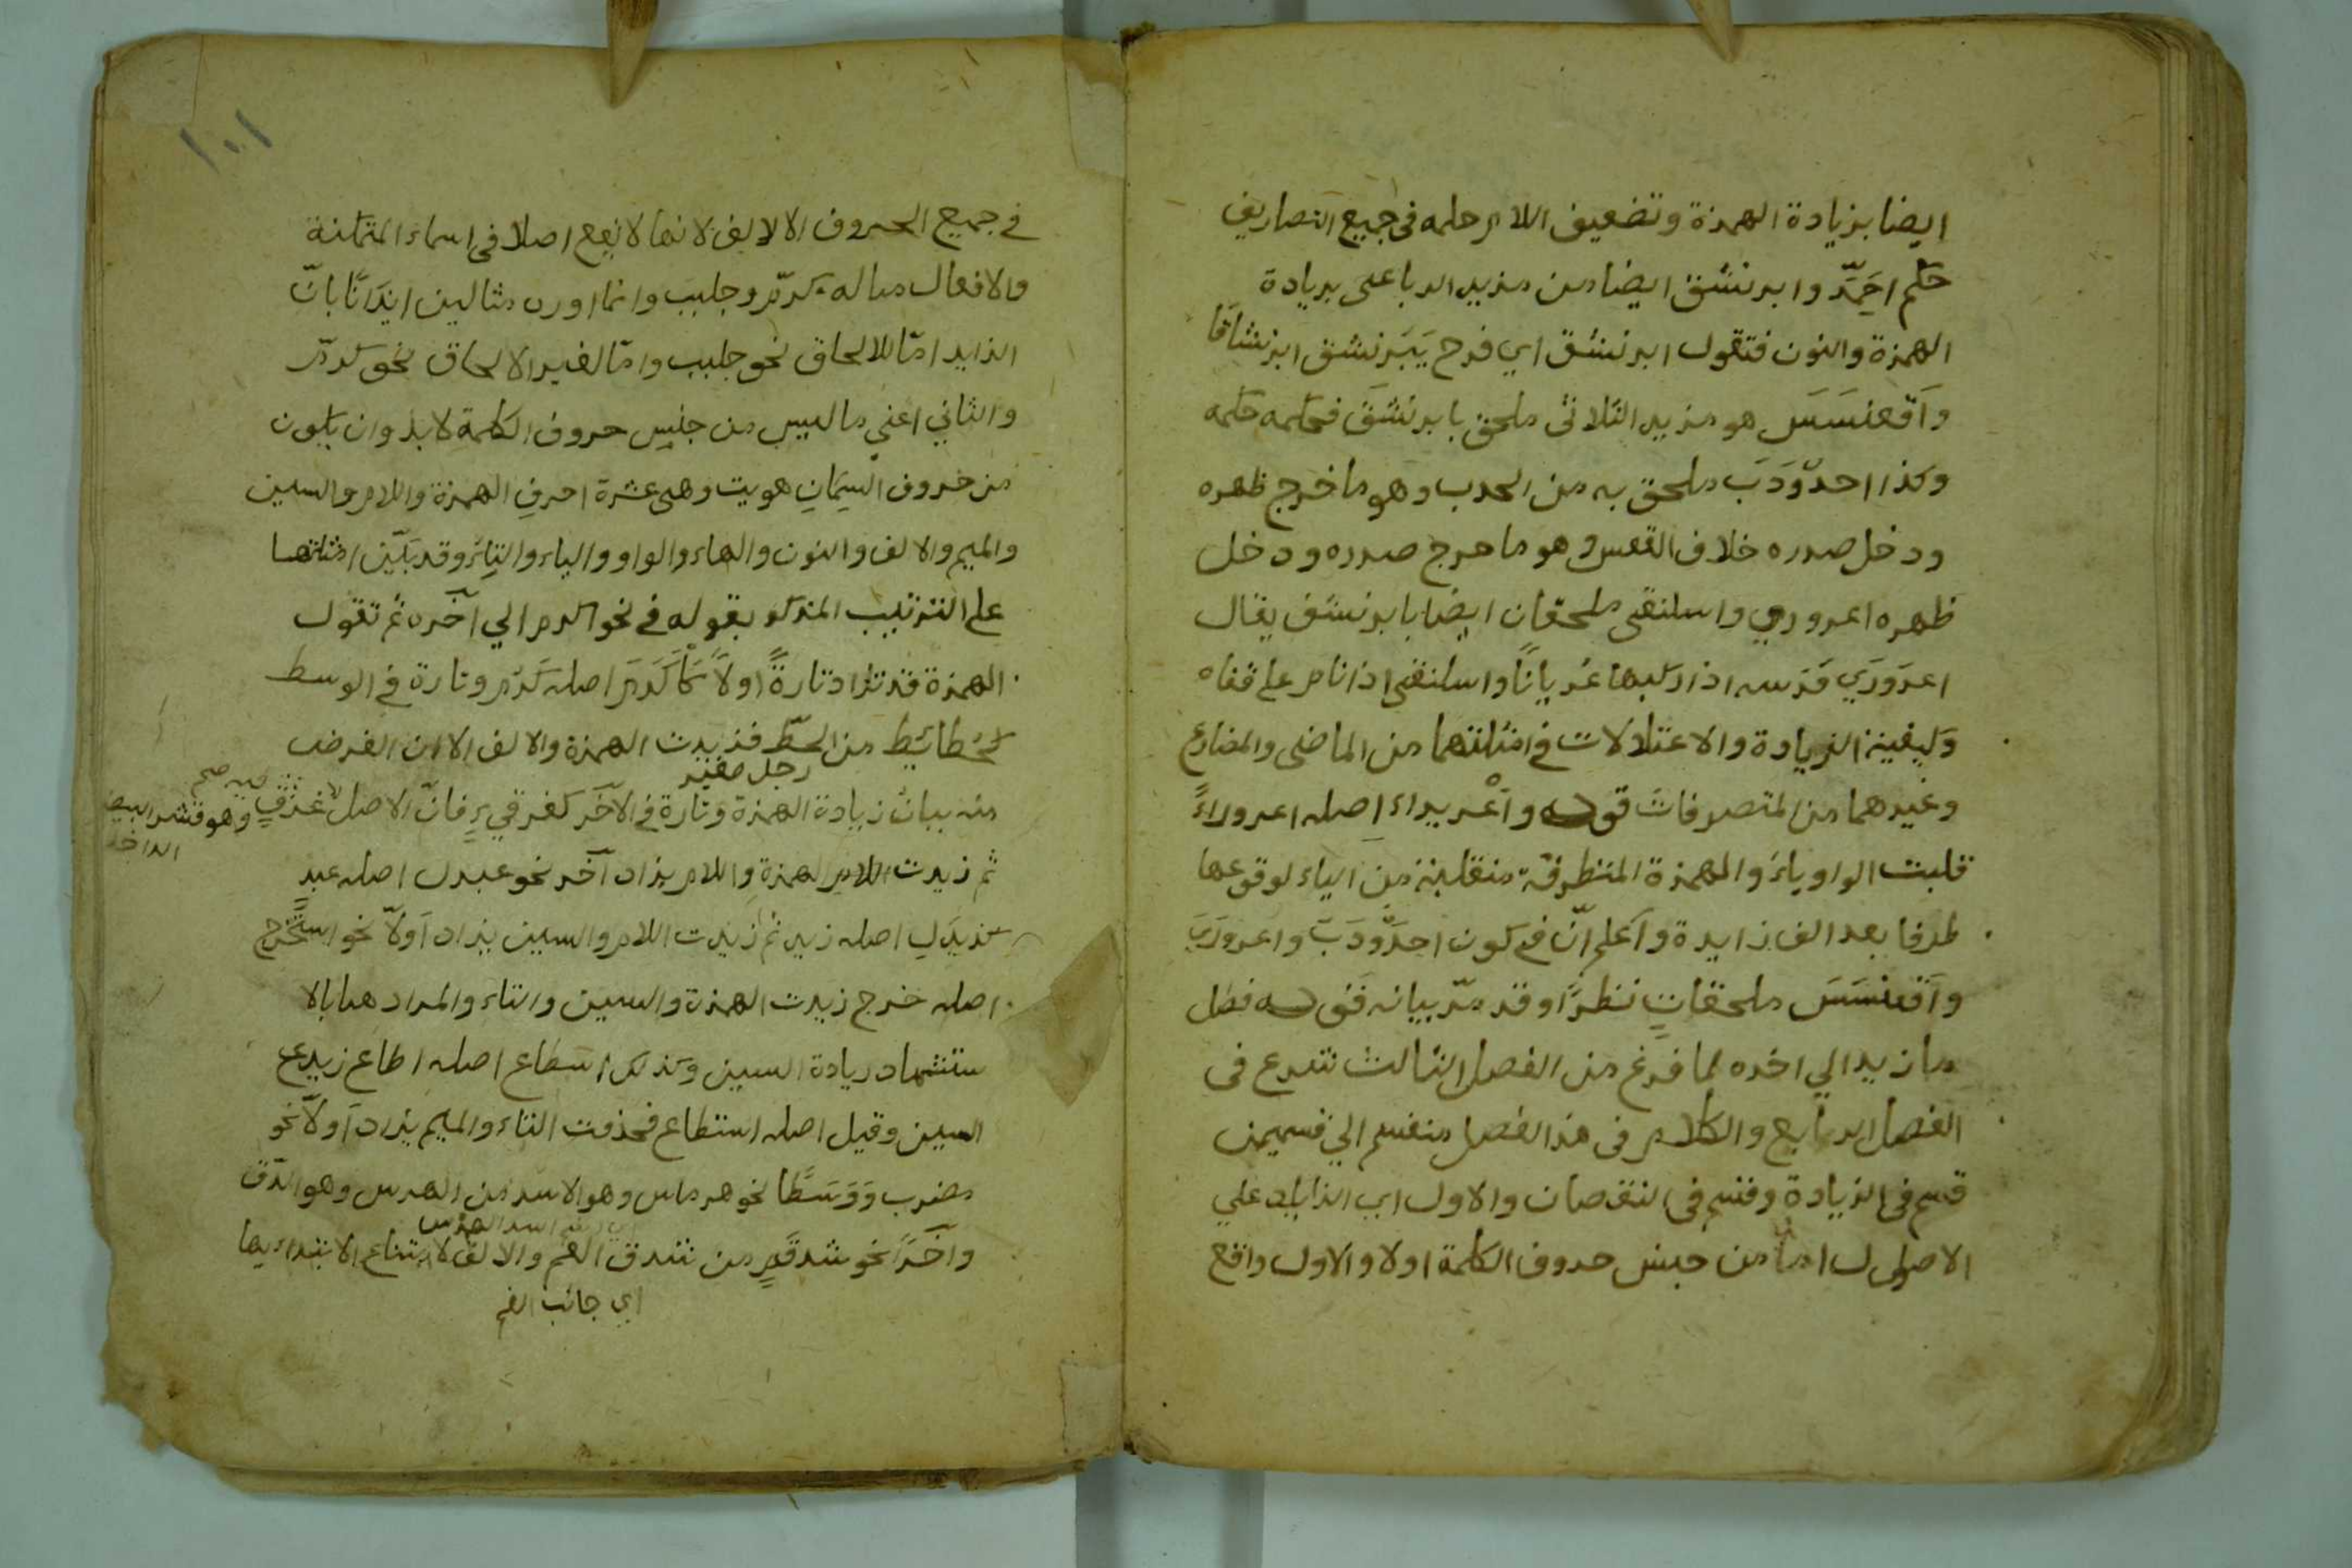 ايضا بزيادة الهمزة وتضعيف اللام حكمه فى جميع التصاريف
حكم احَمَّد وابرنشق ايضا من مزيد الرباعى بزيادة
الهمزة والنون فتقول ابرنشق اي فرح يَبرنشق ابرنشاقا
وآقعنسَسَ هو مزيد الثلاثى ملحق بابرنشَقَ فحكمه حكمه
وكذا احدَوْدَبَ ملحق به من الحدب وهو ما خرج ظهره
ودخل صدره خلاف القعس وهو ما خرج صدره ودخل
ظهره اعروري واسلنقى ملحقان ايضا بابرنشق يقال
اعرَورَي فرسه اذا ركبها عُرياناً واسلنقى اذا نام على قفاه
وكيفية الزيادة والاعتلالات في امثلتهما من الماضى والمضارع
وغيرهما من المتصرفات قوله واعْريراء اصله اعروراءً
قلبت الواو ياءً والهمزة المتطرفة منقلبة من الياء لوقوعها
طرفا بعد الف زايدة وآعلم انّ في كون احدَودَبَ واعرورَيَ
وآقعنسَسَ ملحقاتٍ نظراً وقد مرّ بيانه قوله فصل
ما زيد الي اخره لما فرغ من الفصل الثالث شرع فى
الفصل الرابع والكلام فى هذا الفصل منقسم الي قسمين
قسم فى الزيادة وقسم فى النقصان والاول اي الزايد علي
الاصول اما من جنس حروف الكلمة اولا والاول واقع
١٠١
في جميع الحروف الا الالف لانها لا تقع اصلا فى اسماء المتمكنة
والافعال مثاله كرّم وجلبَبَ وانما اورد مثالين ايذاناً بانّ
الزايد امّا للالحاق نحو جلبب وامّا لغير الالحاق نحو كرّم
والثاني اعني ما ليس من جنس حروف الكلمة لا بد وان يكون
من حروف السِمَانِ هويت وهى عشرة احرفِ الهمزة واللام والسين
والميم والالف والنون والهاء والواو والياء والتاء وقد بَيّن امثلتها
على الترتيب المذكور بقوله في نحو اكرم الي آخره ثم تقول
الهمزة قد تزاد تارةً اولاً كاَكرَمَ اصله كَرُم وتارة في الوسط
كحُطائِط من الحطّ فزيدت الهمزة والالف الا ان الغرض
رجل صغير
منه بيان زيادة الهمزة وتارة في الآخر كغرقيءٍ فانّ الاصل غرق
فيه صح
وهو قشر البيض
الداخل
ثم زيدت الهمزةِ واللام يزاد آخر نحو عبدل اصله عبدٍ
كزيدَلِ اصله زيد ثم زيدت اللام والسين يزاد آولاً نحو استَخرج
اصله خرج زيدت الهمزة والسين والتاء والمراد هنا بالا
ستشهاد زيادة السين وكذلك اسطاع اصله اطاع زيد
السين وقيل اصله استطاع فحذفت التاء والميم يزاد آولاً نحو
مضرب وَوَسَطا نحو هرماس وهو الاسد من الهرس وهو الدّق
وآخراً نحو شدقَمٍ من شدق الفم والالف لامتناع الابتداء بها
اي جانب الفم